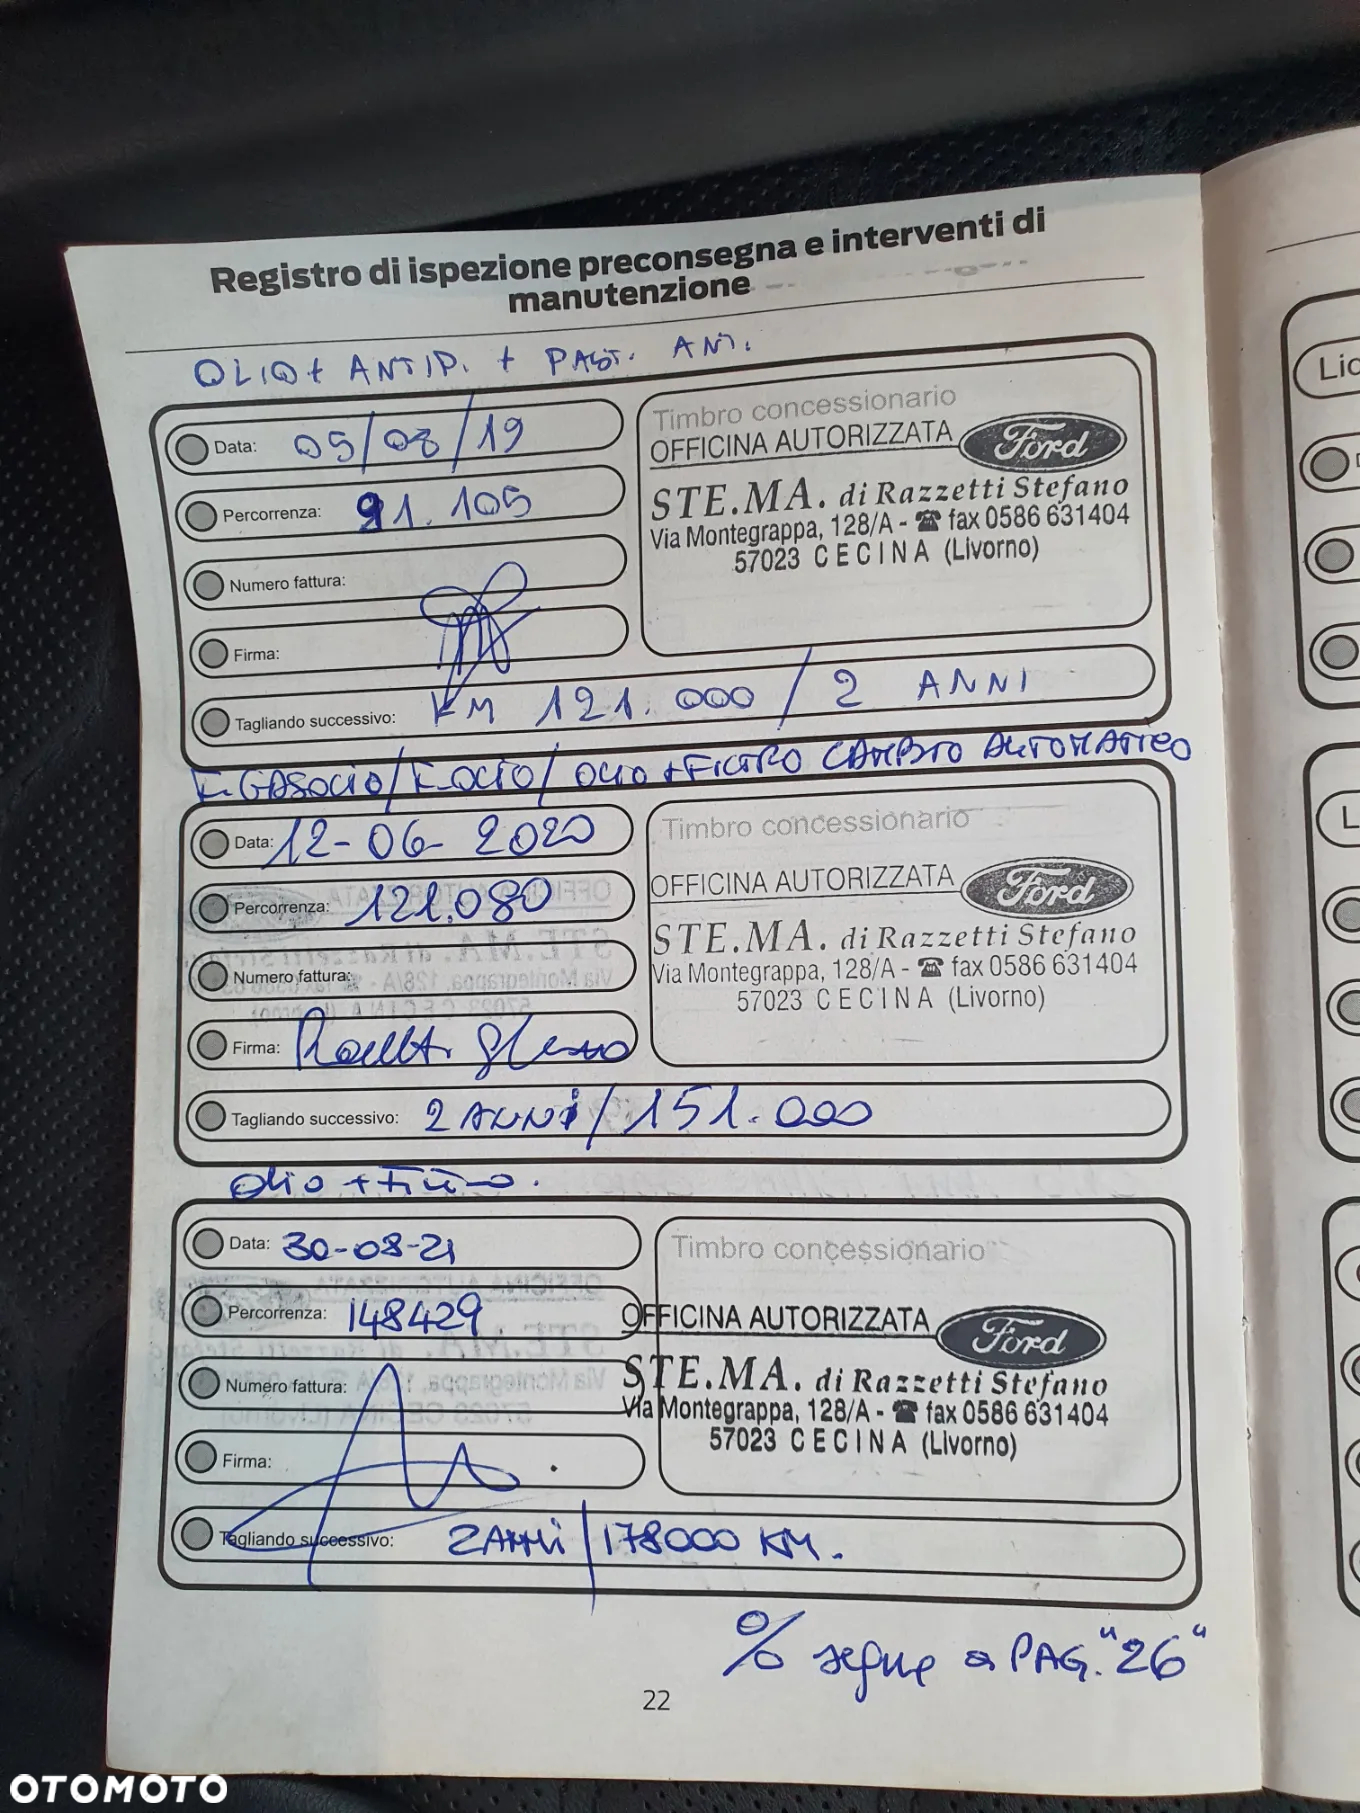 Registro di ispezione preconsegna e interventi di
manutenzione
OLIO + ANTIP. + PAST. ANT.
Data: 05/08/19
Percorrenza: 91.105
Numero fattura:
Firma:
Tagliando successivo: KM 121.000 / 2 ANNI
Timbro concessionario
OFFICINA AUTORIZZATA Ford
STE.MA. di Razzetti Stefano
Via Montegrappa, 128/A - ☎ fax 0586 631404
57023 CECINA (Livorno)
F. GASOLIO / F. OLIO / OLIO + FILTRO CAMBIO AUTOMATICO
Data: 12-06-2020
Percorrenza: 121.080
Numero fattura:
Firma: Razzetti Stefano
Tagliando successivo: 2 ANNI / 151.000
Timbro concessionario
OFFICINA AUTORIZZATA Ford
STE.MA. di Razzetti Stefano
Via Montegrappa, 128/A - ☎ fax 0586 631404
57023 CECINA (Livorno)
Olio + Filtro.
Data: 30-08-21
Percorrenza: 148429
Numero fattura:
Firma:
Tagliando successivo: 2 ANNI / 178000 KM.
Timbro concessionario
OFFICINA AUTORIZZATA Ford
STE.MA. di Razzetti Stefano
Via Montegrappa, 128/A - ☎ fax 0586 631404
57023 CECINA (Livorno)
% segue a PAG. "26"
22
OTOMOTO